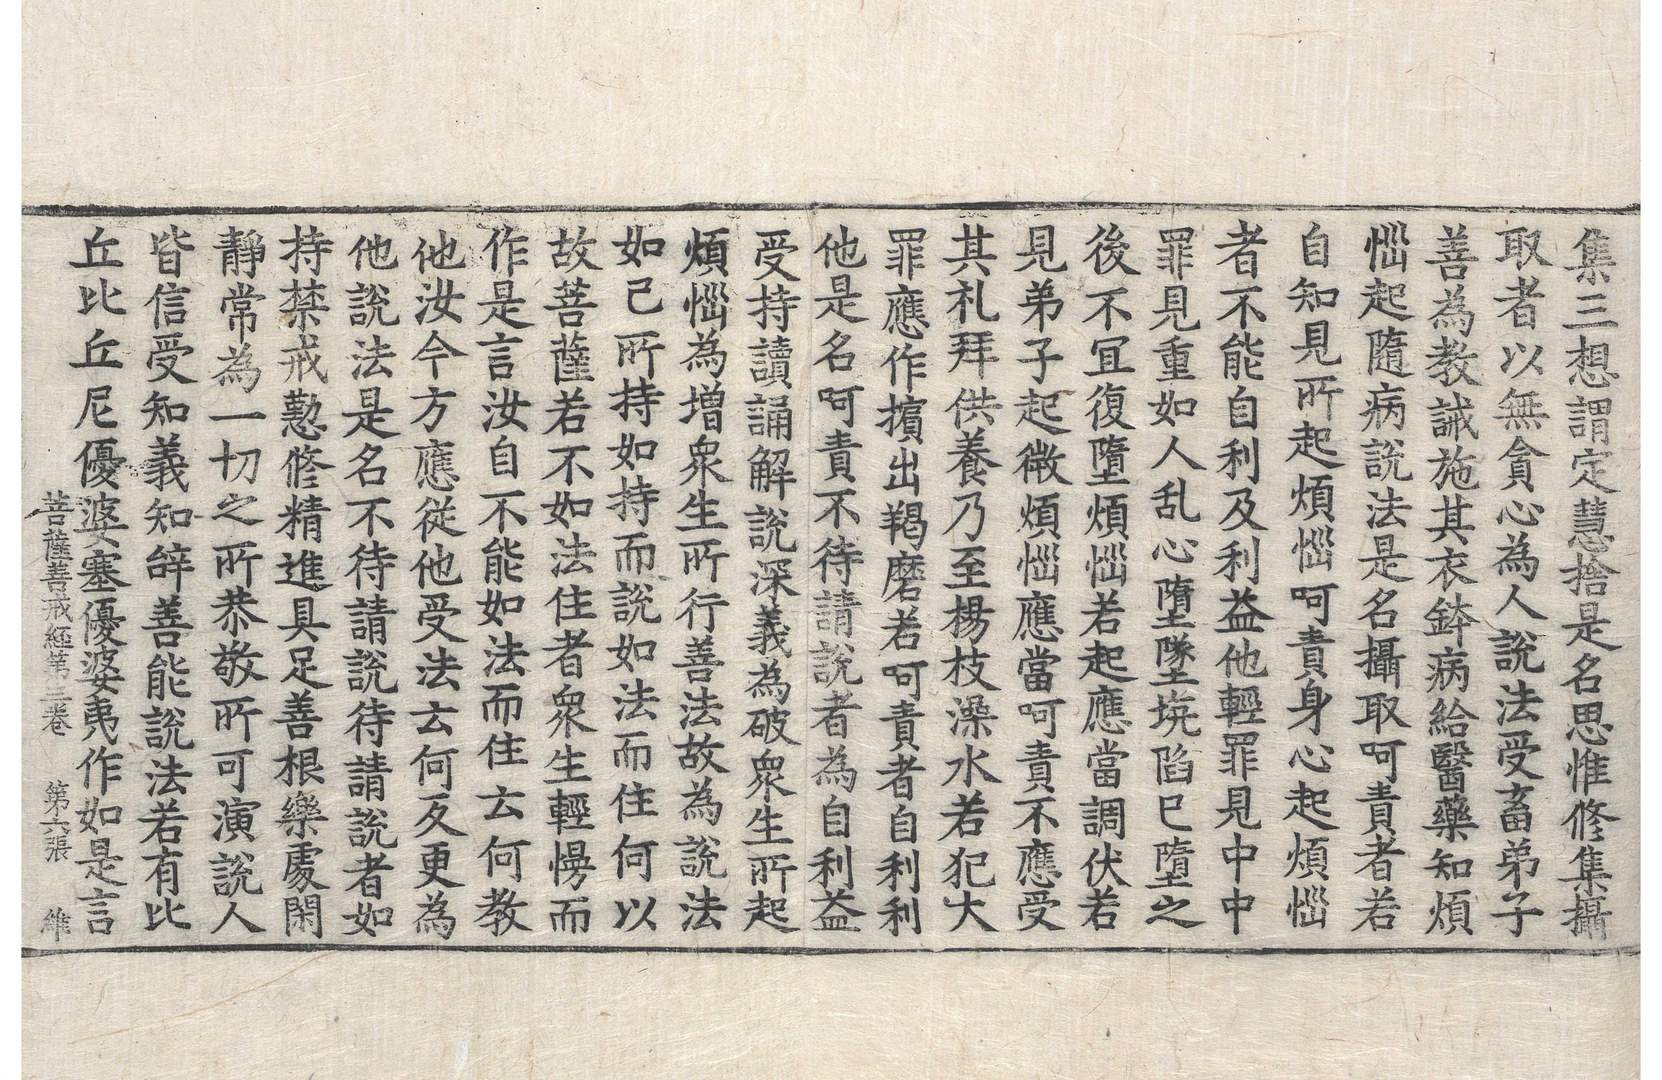 集三想謂定慧捨是名思惟修集攝
取者以無貪心為人說法受畜弟子
善為教誡施其衣鉢病給醫藥知煩
惱起隨病說法是名攝取呵責者若
自知見所起煩惱呵責身心起煩惱
者不能自利及利益他輕罪見中中
罪見重如人乱心墮墜坑陷已墮之
後不冝復墮煩惱若起應當調伏若
見弟子起微煩惱應當呵責不應受
其礼拜供養乃至楊枝澡水若犯大
罪應作擯出羯磨若呵責者自利利
他是名呵責不待請說者為自利益
受持讀誦解說深義為破衆生所起
煩惱為增衆生所行善法故為說法
如己所持如持而說如法而住何以
故菩薩若不如法住者衆生輕慢而
作是言汝自不能如法而住云何教
他汝今方應從他受法云何反更為
他說法是名不待請說待請說者如
持禁戒懃修精進具足善根樂處閑
靜常為一切之所恭敬所可演說人
皆信受知義知辞善能說法若有比
丘比丘尼優婆塞優婆夷作如是言
菩薩善戒經第三卷　第六張　維